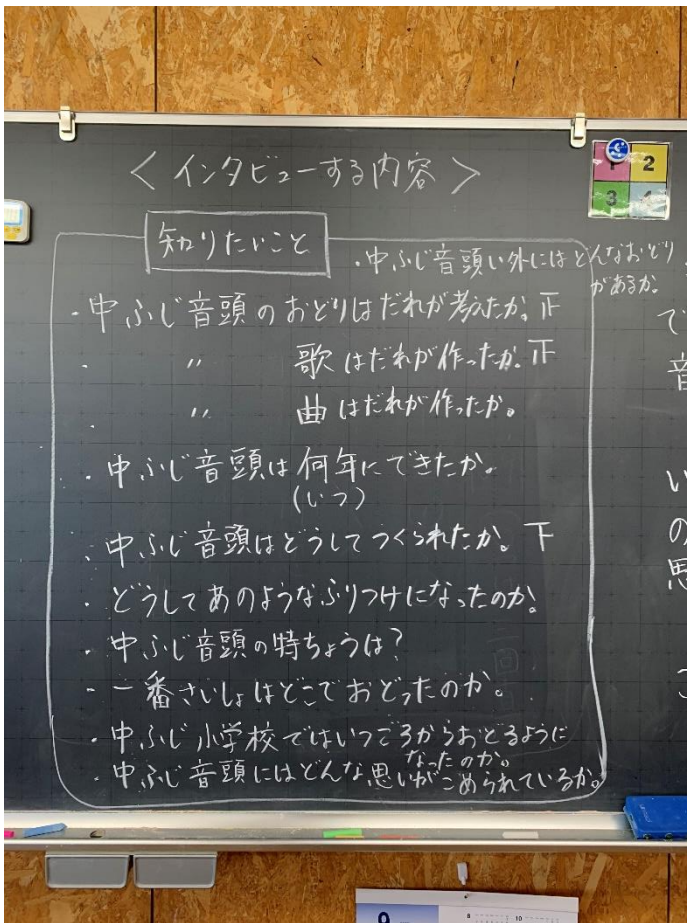 ＜インタビューする内容＞
知りたいこと
・中ふじ音頭い外にはどんなおどり
があるか。
・中ふじ音頭のおどりはだれが考えたか。正
・　〃　歌はだれが作ったか。下
・　〃　曲はだれが作ったか。
・中ふじ音頭は何年にできたか。
(いつ)
・中ふじ音頭はどうしてつくられたか。下
・どうしてあのようなふりつけになったのか。
・中ふじ音頭の特ちょうは？
・一番さいしょはどこでおどったのか。
・中ふじ小学校ではいつごろからおどるように
なったのか。
・中ふじ音頭にはどんな思いがこめられているか。
1 2
3 4
で
音
い
の
思
9
8
10